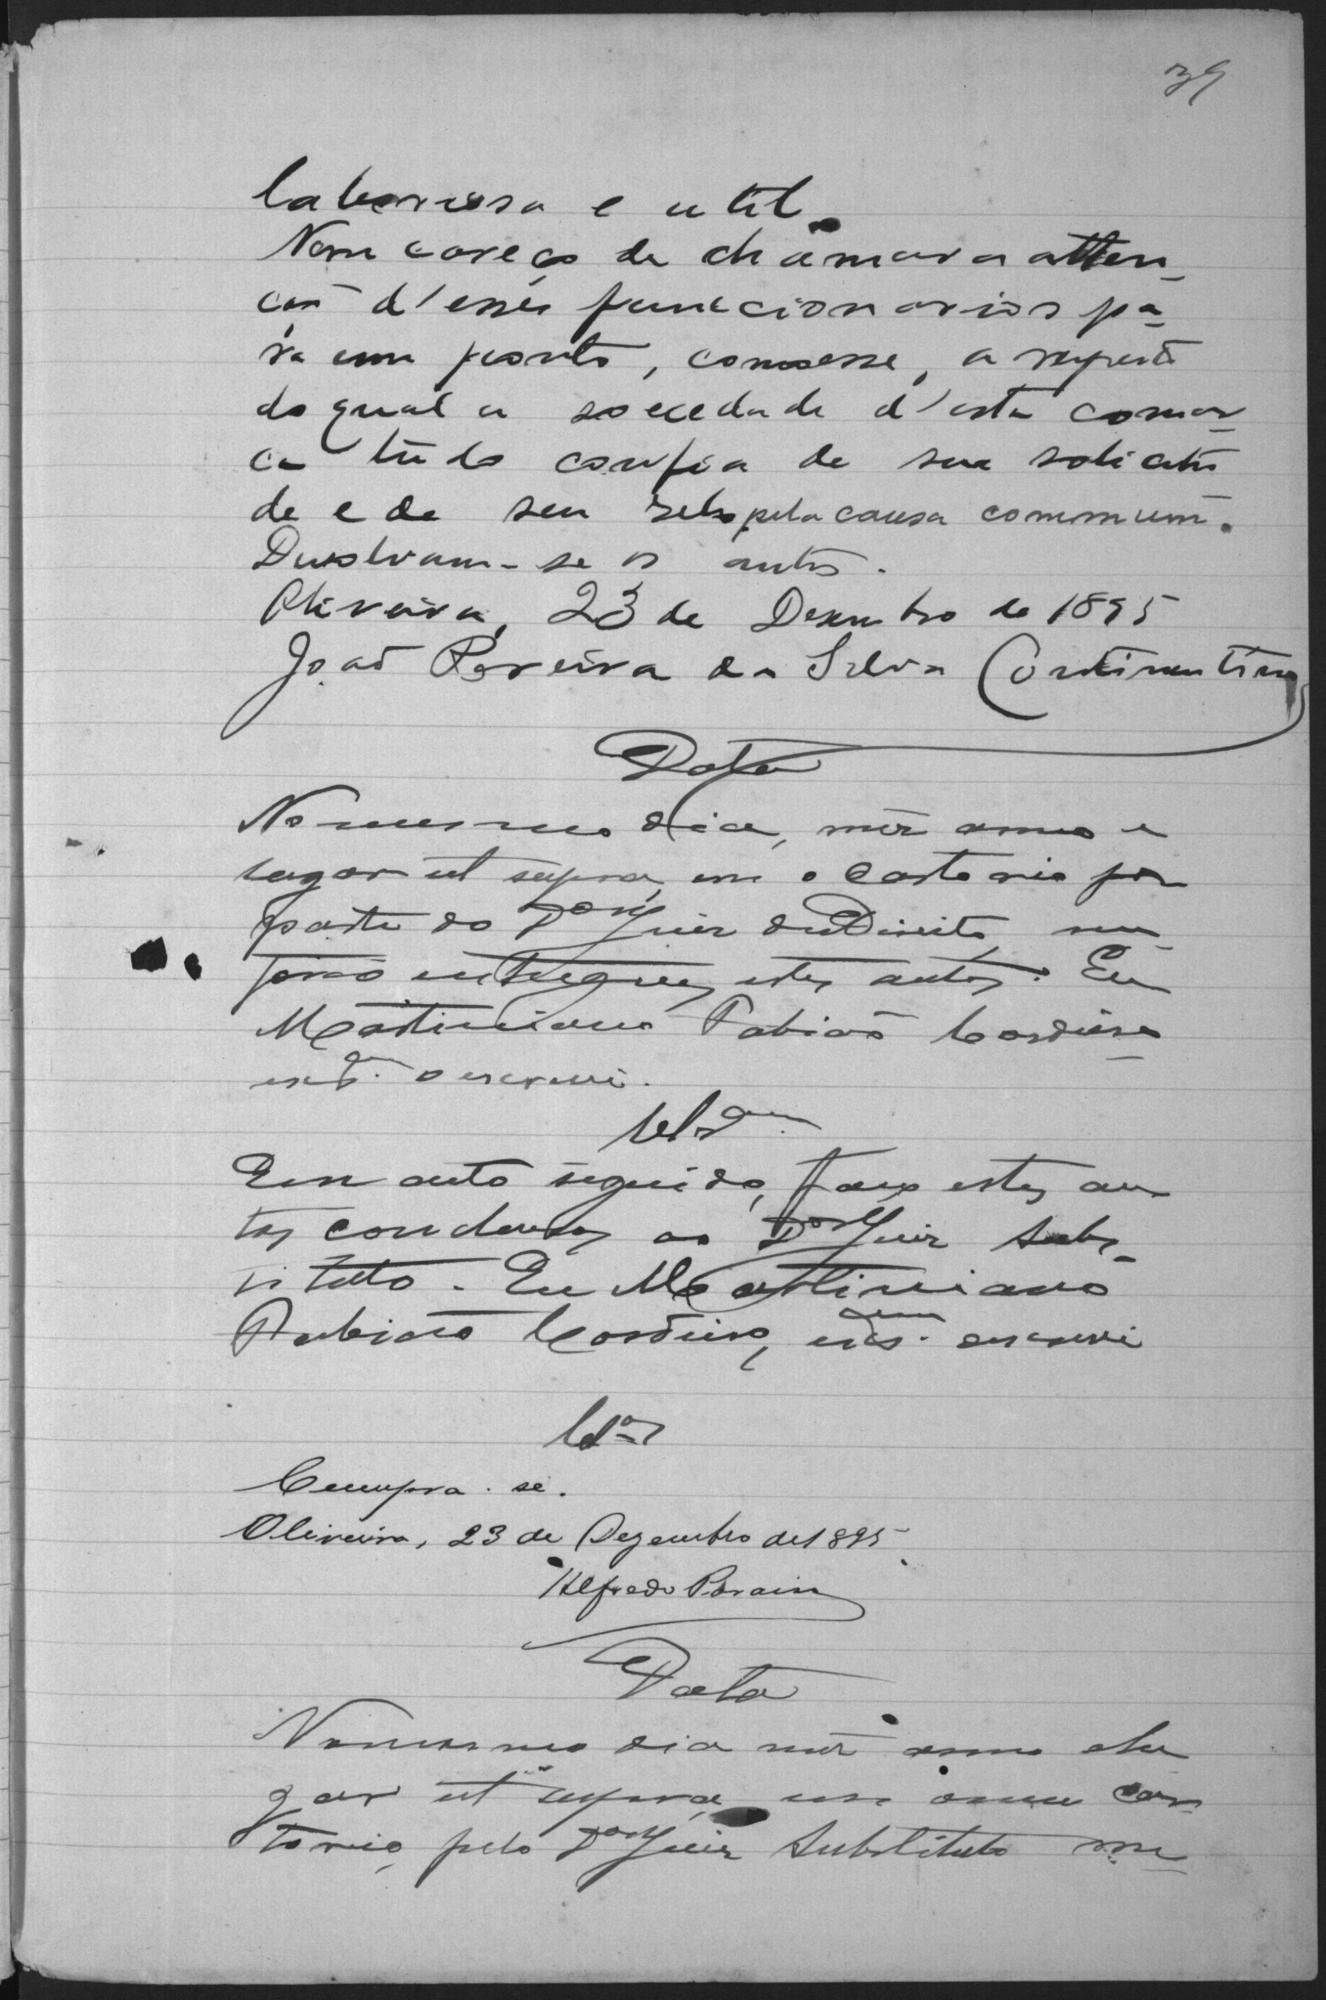 39
laboriosa e util.
Nem careço de chamar a atten-
ção d'esses funccionarios pa-
ra um ponto, como esse, a respeito
do qual a sociedade d'esta comar-
ca tudo confia de sua solicitu
de e de seu zelo pela causa commum.
Devolvam-se os autos.
Oliveira, 23 de Dezembro de 1895
João Pereira da Silva Continentino
Data
No mesmo dia, mez anno e
lugar ut supra, em o cartorio por
parte do Dor Juiz de Direito, me
forão entregues estes autos. Eu
Martiniano Rabião Cordeiro
escam. o escrevi.
Clsam.
Em acto seguido, faço estes au
tos conclusos ao Dor Juiz Subs-
tituto. Eu Martiniano
Rabião Cordeiro, escam. escrevi
Clos
Cumpra-se.
Oliveira, 23 de Dezembro de 1895.
Alfredo
Data
No mesmo dia mez anno e lu
gar ut supra, em o meu car
torio, pelo Dor Juiz Substituto me